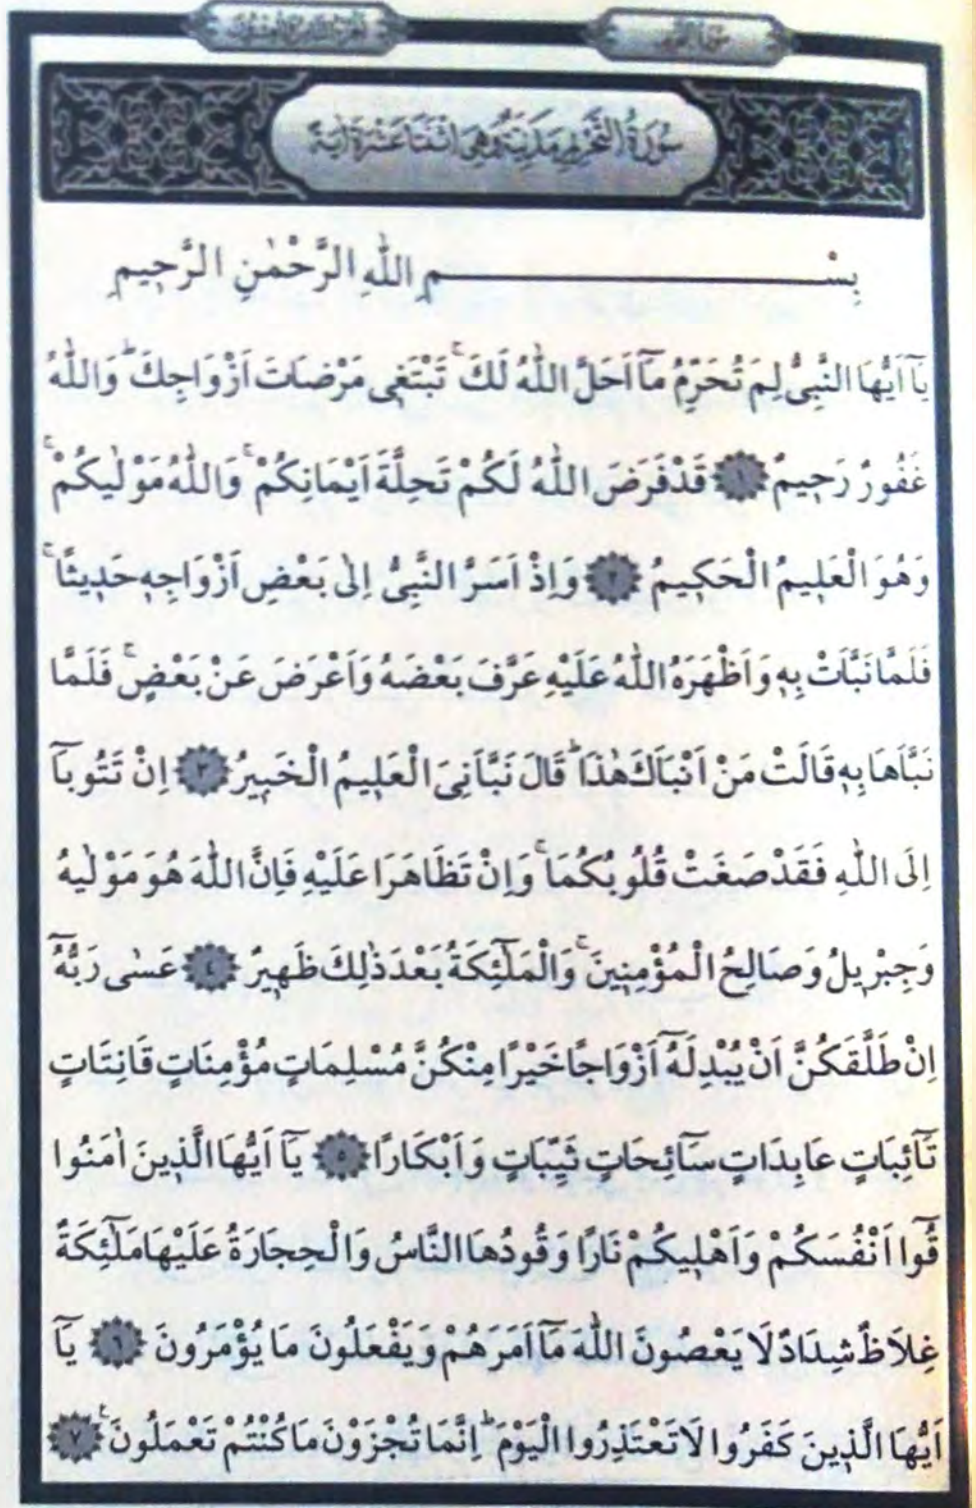 سُورَةُ التَّحْرِيمِ مَدَنِيَّةٌ وَهِيَ اثْنَتَا عَشْرَةَ اٰيَةً
بِسْمِ اللّٰهِ الرَّحْمٰنِ الرَّحِيمِ
يَٓا اَيُّهَا النَّبِيُّ لِمَ تُحَرِّمُ مَٓا اَحَلَّ اللّٰهُ لَكَۚ تَبْتَغ۪ي مَرْضَاتَ اَزْوَاجِكَۜ وَاللّٰهُ
غَفُورٌ رَح۪يمٌ ﴿١﴾ قَدْ فَرَضَ اللّٰهُ لَكُمْ تَحِلَّةَ اَيْمَانِكُمْۚ وَاللّٰهُ مَوْلٰيكُمْۚ
وَهُوَ الْعَل۪يمُ الْحَك۪يمُ ﴿٢﴾ وَاِذْ اَسَرَّ النَّبِيُّ اِلٰى بَعْضِ اَزْوَاجِه۪ حَد۪يثًاۚ
فَلَمَّا نَبَّاَتْ بِه۪ وَاَظْهَرَهُ اللّٰهُ عَلَيْهِ عَرَّفَ بَعْضَهُ وَاَعْرَضَ عَنْ بَعْضٍۚ فَلَمَّا
نَبَّاَهَا بِه۪ قَالَتْ مَنْ اَنْبَاَكَ هٰذَاۜ قَالَ نَبَّاَنِيَ الْعَل۪يمُ الْخَب۪يرُ ﴿٣﴾ اِنْ تَتُوبَٓا
اِلَى اللّٰهِ فَقَدْ صَغَتْ قُلُوبُكُمَاۚ وَاِنْ تَظَاهَرَا عَلَيْهِ فَاِنَّ اللّٰهَ هُوَ مَوْلٰيهُ
وَجِبْر۪يلُ وَصَالِحُ الْمُؤْمِن۪ينَۚ وَالْمَلٰٓئِكَةُ بَعْدَ ذٰلِكَ ظَه۪يرٌ ﴿٤﴾ عَسٰى رَبُّهُٓ
اِنْ طَلَّقَكُنَّ اَنْ يُبْدِلَهُٓ اَزْوَاجًا خَيْرًا مِنْكُنَّ مُسْلِمَاتٍ مُؤْمِنَاتٍ قَانِتَاتٍ
تَٓائِبَاتٍ عَابِدَاتٍ سَٓائِحَاتٍ ثَيِّبَاتٍ وَاَبْكَارًا ﴿٥﴾ يَٓا اَيُّهَا الَّذ۪ينَ اٰمَنُوا
قُٓوا اَنْفُسَكُمْ وَاَهْل۪يكُمْ نَارًا وَقُودُهَا النَّاسُ وَالْحِجَارَةُ عَلَيْهَا مَلٰٓئِكَةٌ
غِلَاظٌ شِدَادٌ لَا يَعْصُونَ اللّٰهَ مَٓا اَمَرَهُمْ وَيَفْعَلُونَ مَا يُؤْمَرُونَ ﴿٦﴾ يَٓا
اَيُّهَا الَّذ۪ينَ كَفَرُوا لَا تَعْتَذِرُوا الْيَوْمَۜ اِنَّمَا تُجْزَوْنَ مَا كُنْتُمْ تَعْمَلُونَۚ ﴿٧﴾